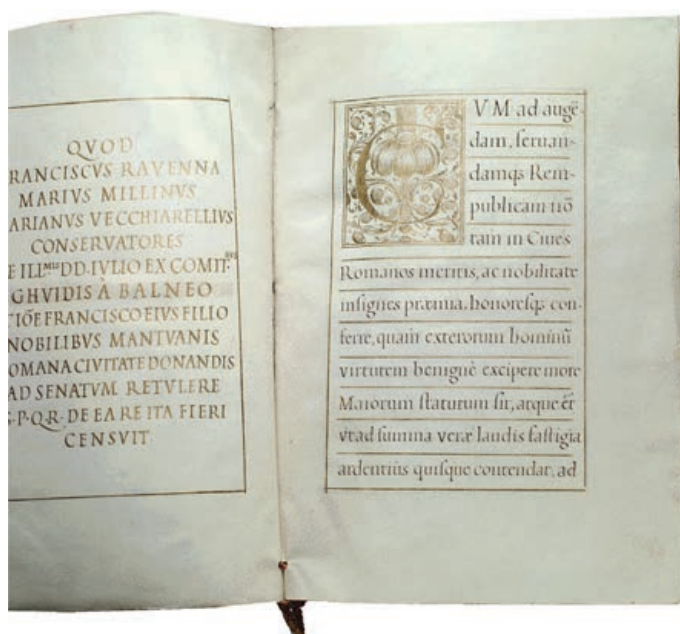 QVOD
RANCISCVS RAVENNA
MARIVS MILLINVS
ARIANVS VECCHIARELLIVS
CONSERVATORES
E ILL^MIS DD·IVLIO EX COMIT·^BVS
GHVIDIS À BALNEO
TIŌE FRANCISCO EIVS FILIO
NOBILIBVS MANTVANIS
OMANA CIVITATE DONANDIS
AD SENATVM RETVLERE
S·P·Q·R· DE EA RE ITA FIERI
CENSVIT
CVM ad augē-
dam, seruan-
damqs Rem-
publicam nō
tam in Ciues
Romanos meritis, ac nobilitate
insignes præmia, honoresqs con-
ferre, quam exterorum hominū
virtutem benignè excipere more
Maiorum statutum sit, atque ēt
vt ad summa veræ laudis fastigia
ardentiùs quisque contendat, ad